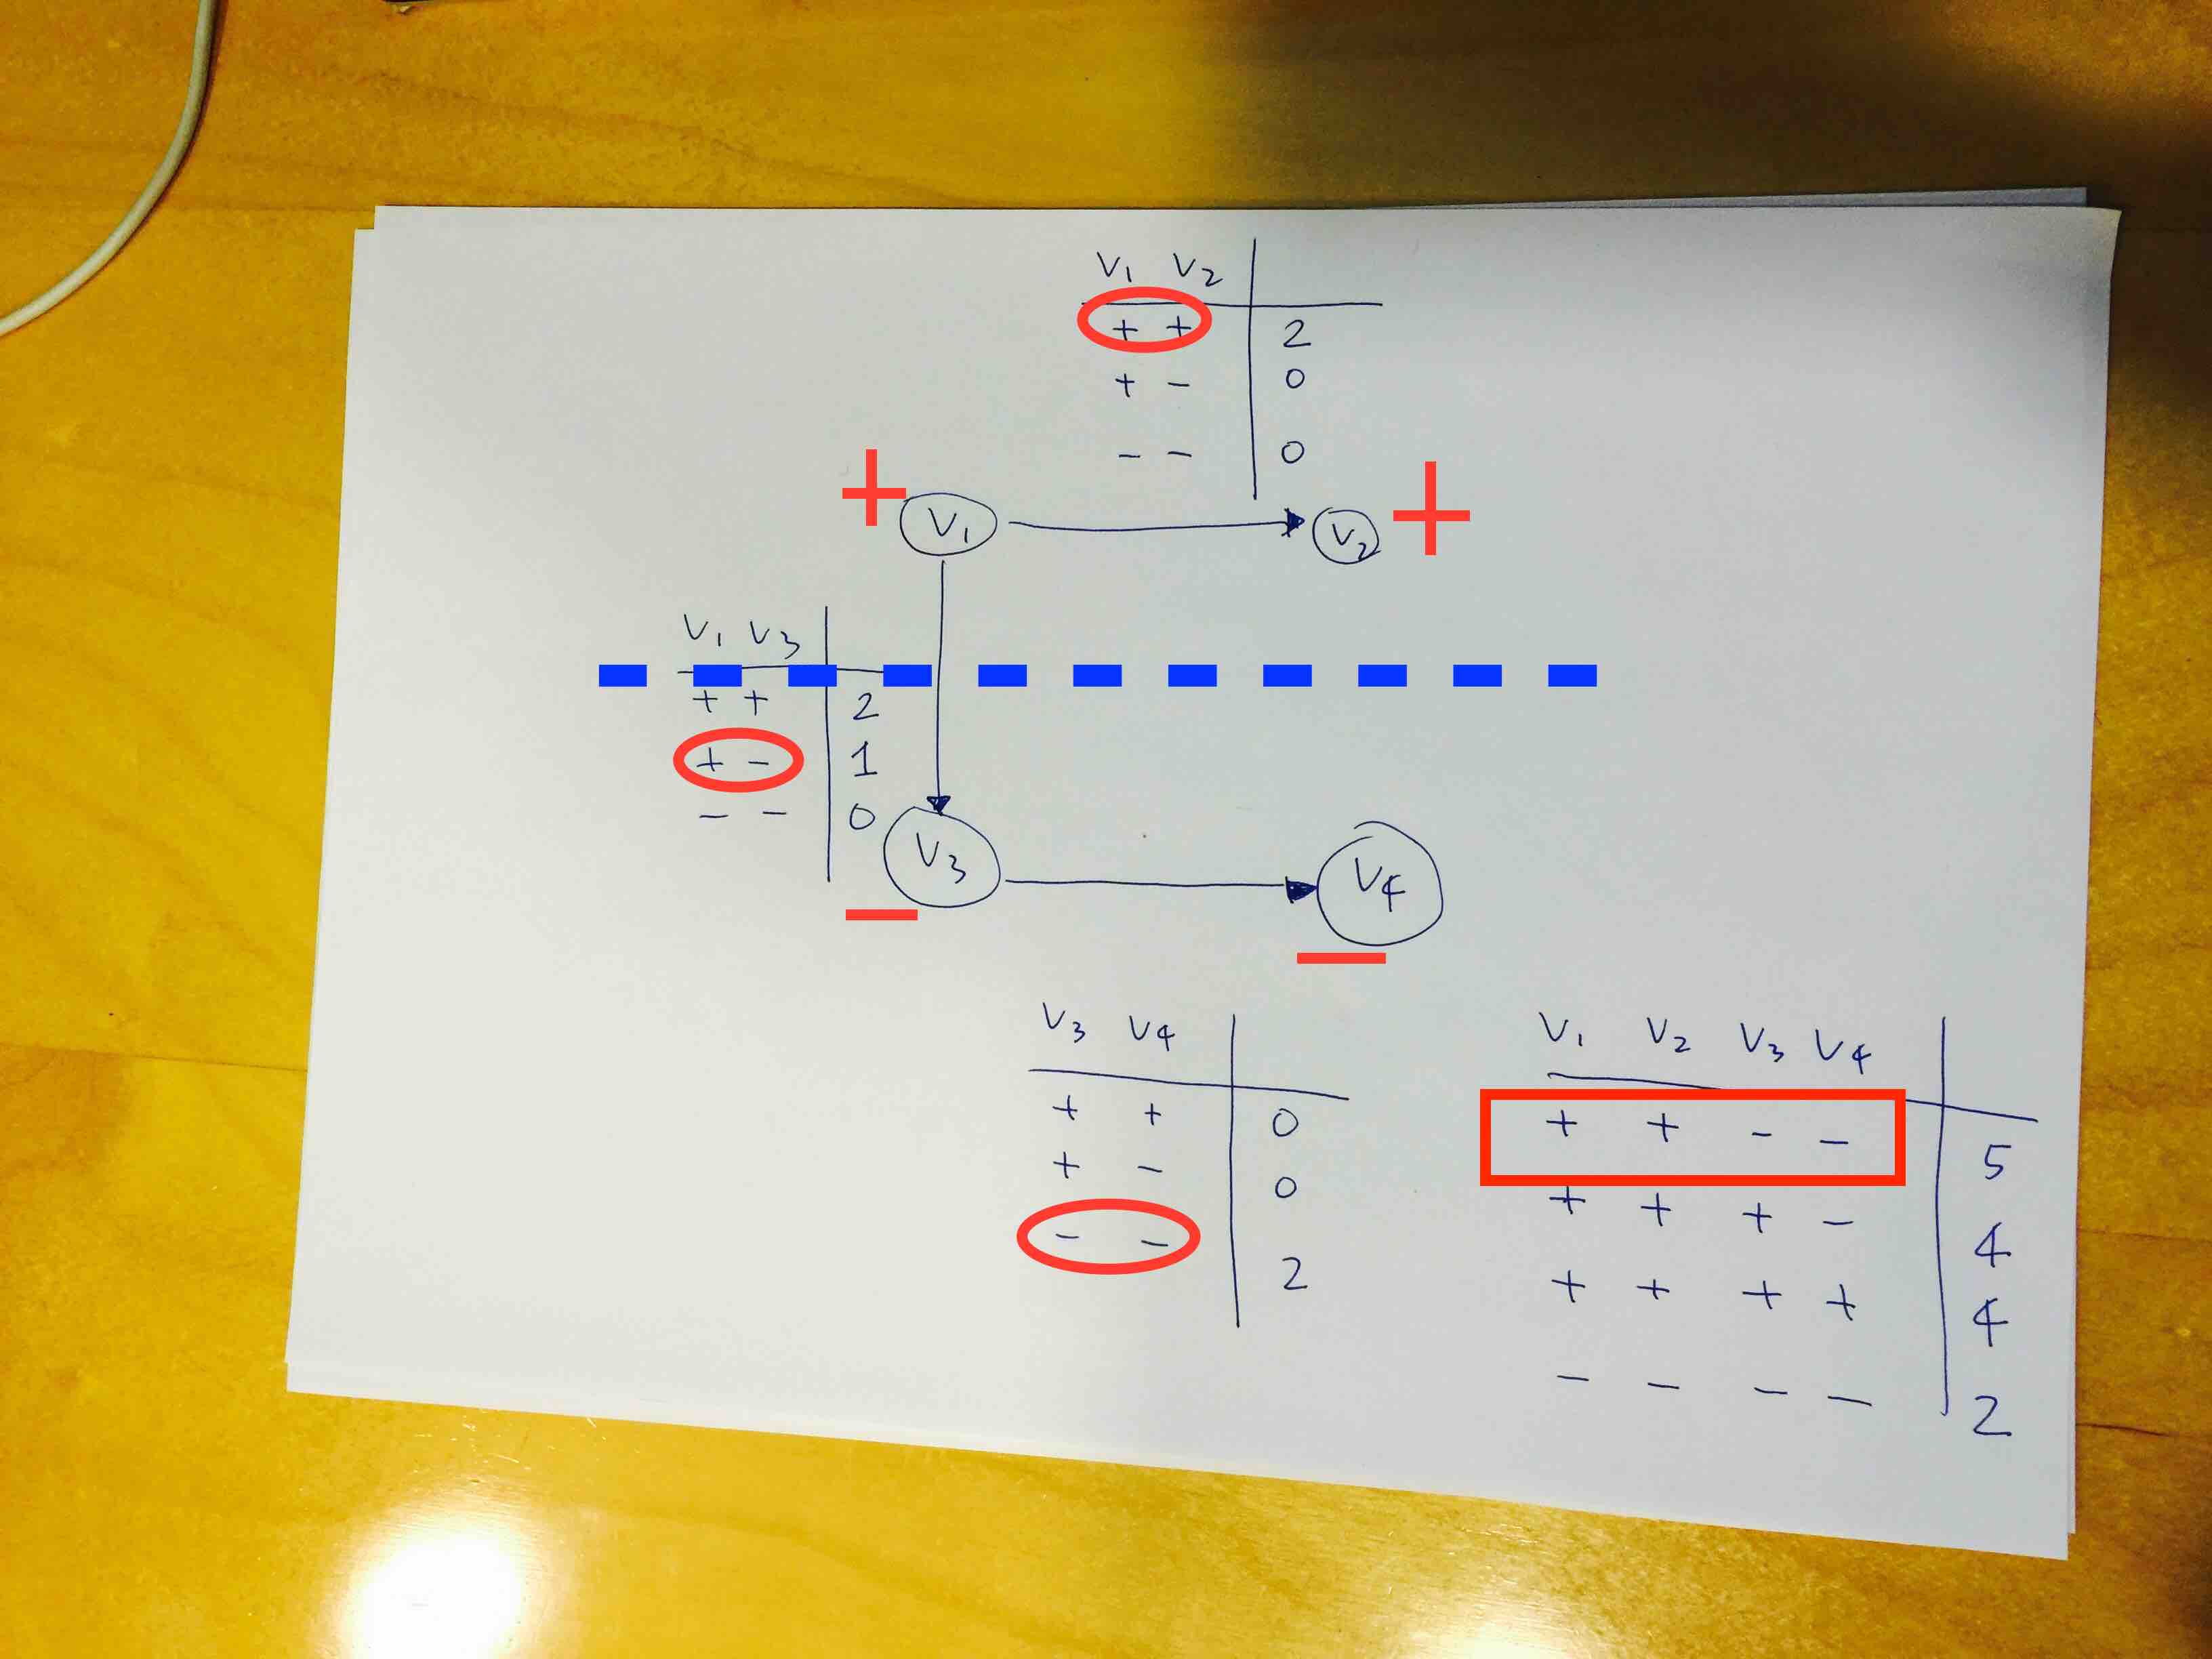 V1 V2
+ + 2
+ - 0
- - 0
+ V1 V2 +
V1 V3
+ + 2
+ - 1
- - 0
V3 V4
- -
V3 V4
+ + 0
+ - 0
- - 2
V1 V2 V3 V4
+ + - - 5
+ + + - 4
+ + + + 4
- - - - 2